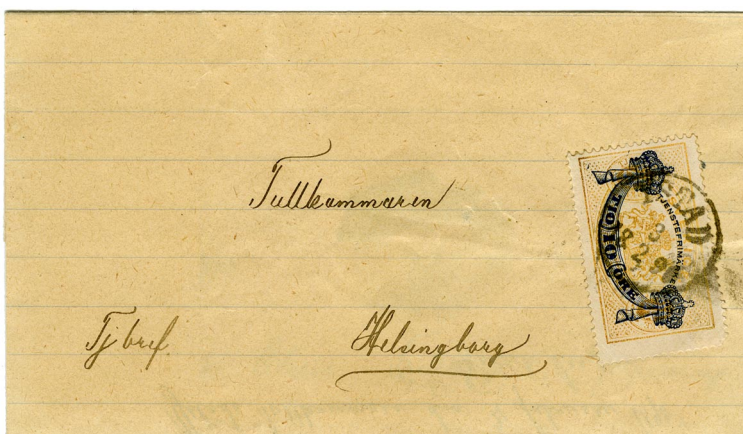 Tullkammaren
Tjbref
Helsingborg
TJENSTEFRIMÄRKE
TIO 10 ÖRE